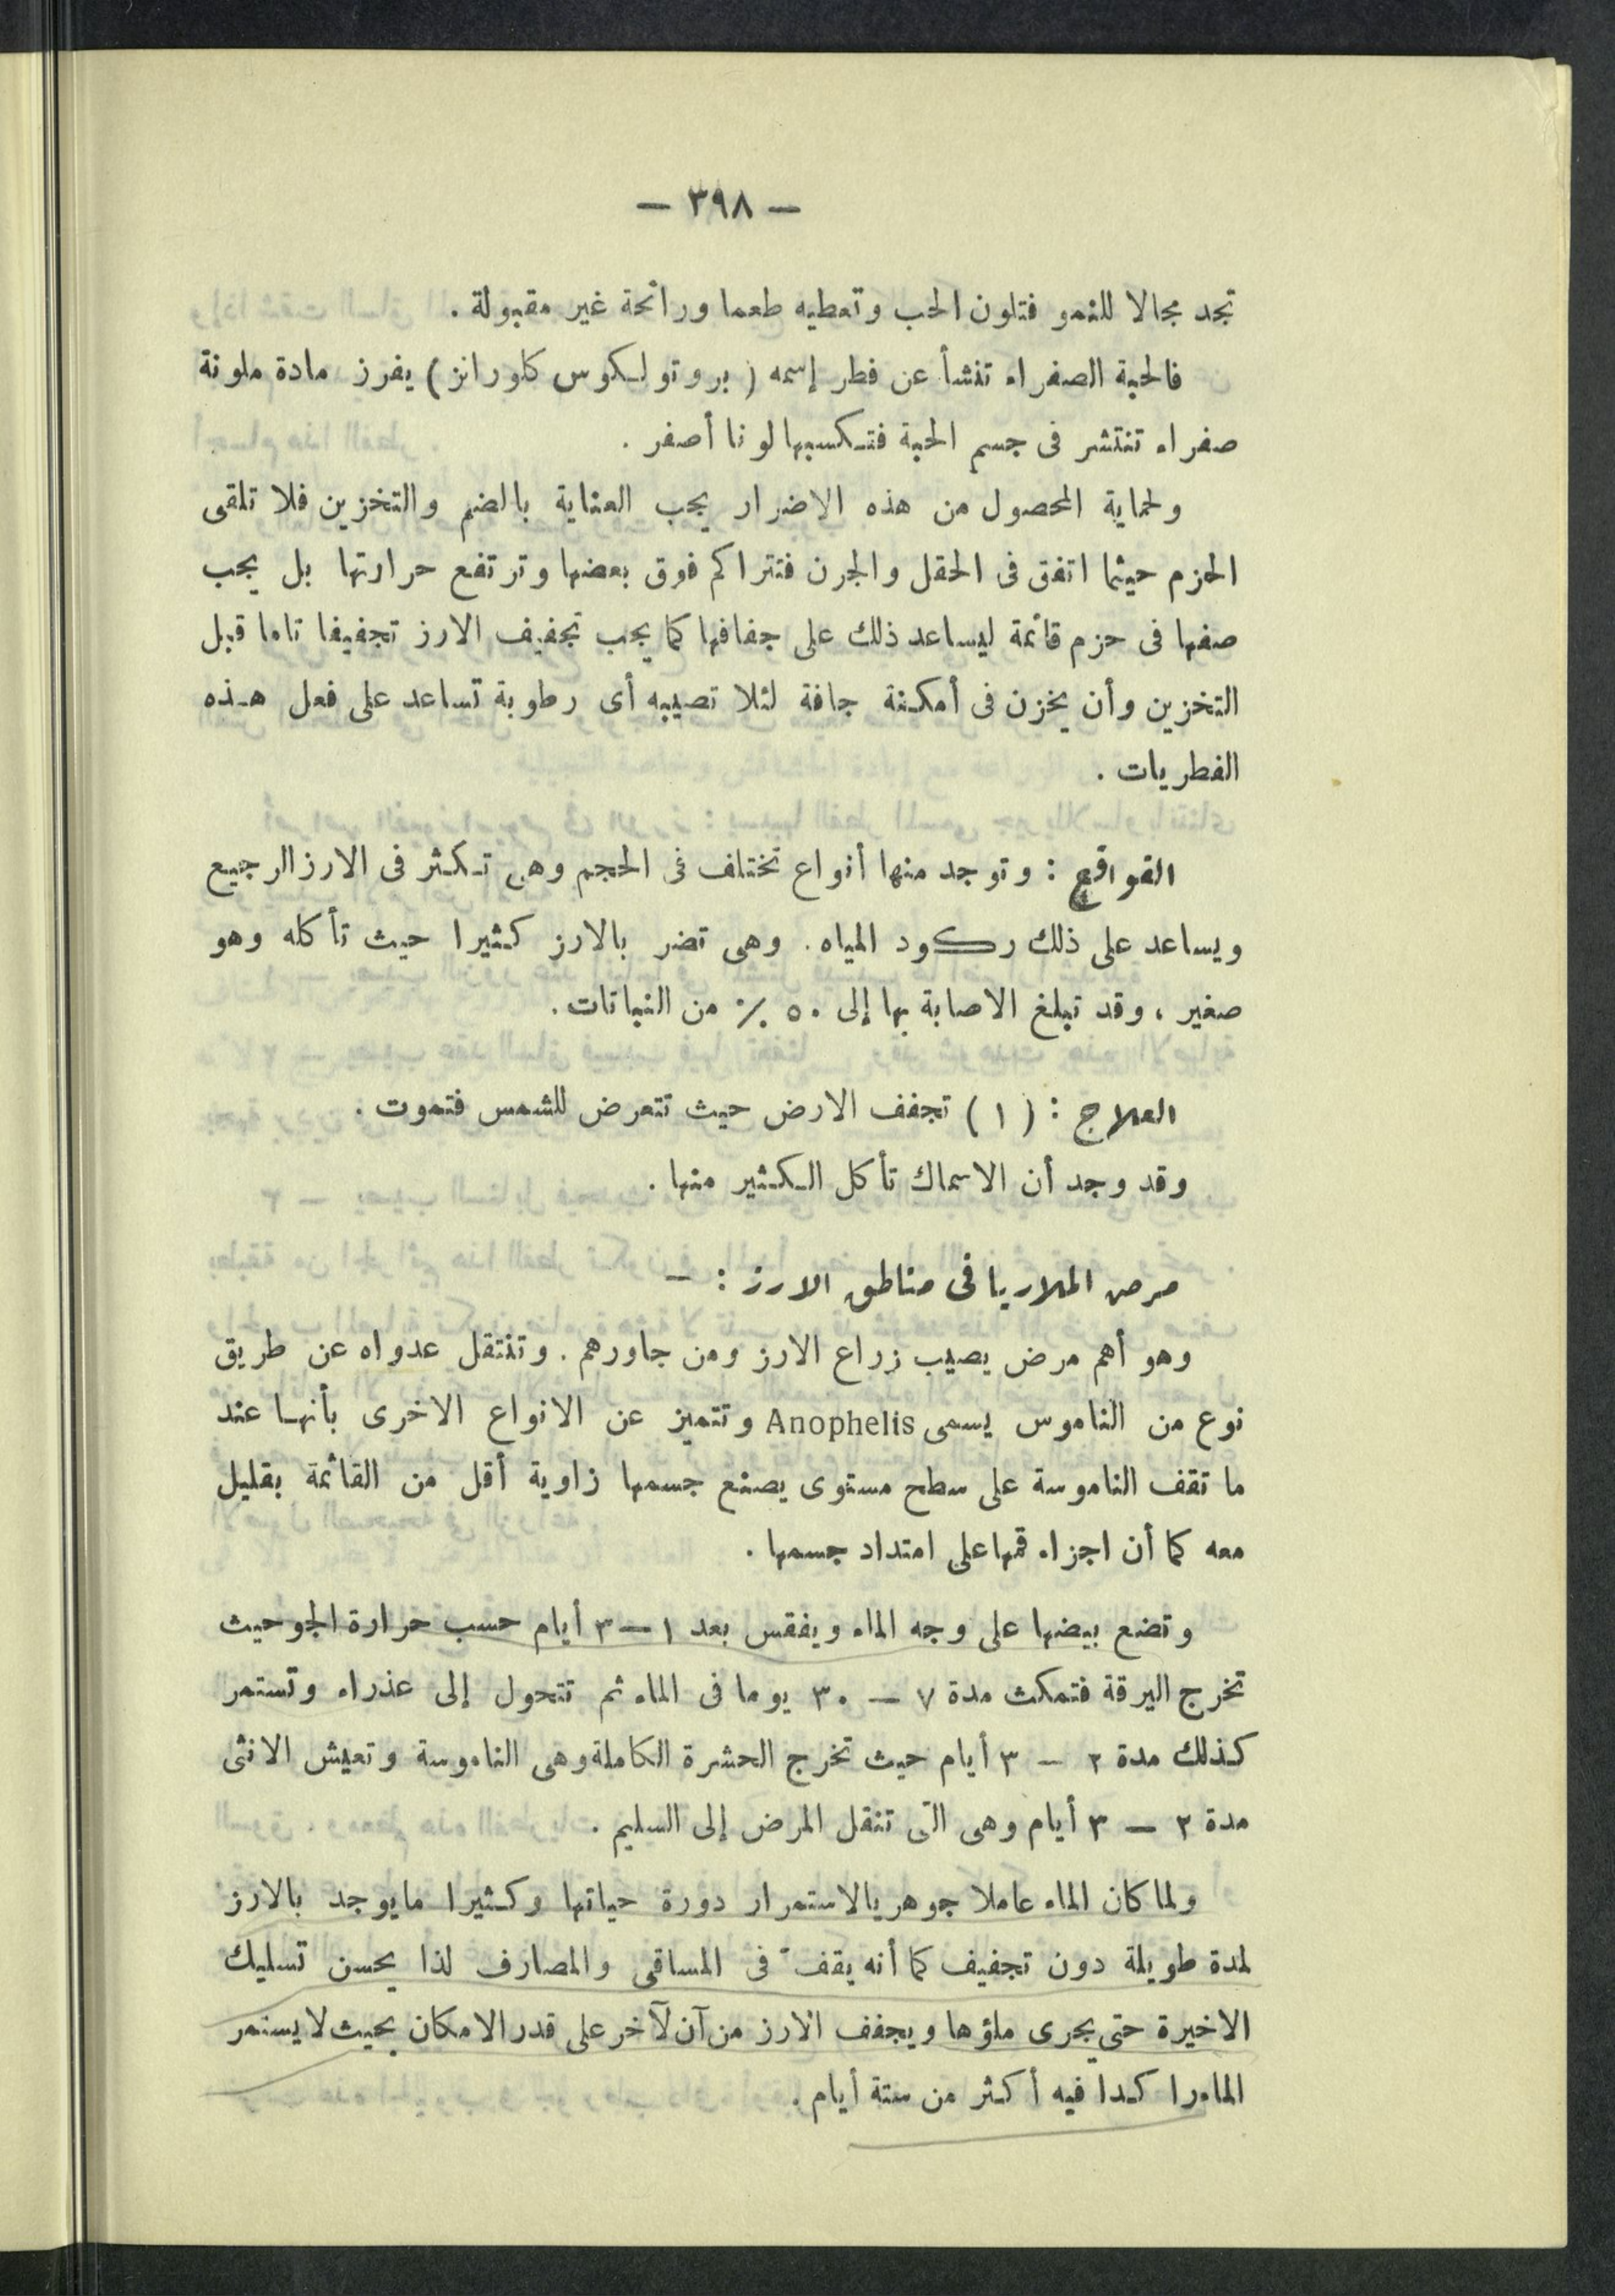 — ٣٩٨ —
تجد مجالا للنمو فتلون الحب وتعطيه طعما ورائحة غير مقبولة .
فالحبة الصفراء تنشأ عن فطر إسمه ( بروتولكوس كلورانز ) يفرز مادة ملونة
صفراء تنتشر فى جسم الحبة فتكسبها لونا أصفر .
ولحماية المحصول من هذه الاضرار يجب العناية بالضم والتخزين فلا تلقى
الحزم حيثما اتفق فى الحقل والجرن فتتراكم فوق بعضها وترتفع حرارتها بل يجب
صفها فى حزم قائمة ليساعد ذلك على جفافها كما يجب تجفيف الارز تجفيفا تاما قبل
التخزين وأن يخزن فى أمكنة جافة لئلا تصيبه أى رطوبة تساعد على فعل هذه
الفطريات .
القواقع : وتوجد منها أنواع تختلف فى الحجم وهى تكثر فى الارز الرجيع
ويساعد على ذلك ركود المياه . وهى تضر بالارز كثيرا حيث تأكله وهو
صغير ، وقد تبلغ الاصابة بها إلى ٥٠ ٪ من النباتات .
العلاج : ( ١ ) تجفف الارض حيث تتعرض للشمس فتموت .
وقد وجد أن الاسماك تأكل الكثير منها .
مرض الملاريا فى مناطق الارز : —
وهو أهم مرض يصيب زراع الارز ومن جاورهم . وتنتقل عدواه عن طريق
نوع من الناموس يسمى Anophelis وتتميز عن الانواع الاخرى بأنها عند
ما تقف الناموسة على سطح مستوى يصنع جسمها زاوية أقل من القائمة بقليل
معه كما أن اجزاء فمها على امتداد جسمها .
وتضع بيضها على وجه الماء ويفقس بعد ١ — ٣ أيام حسب حرارة الجو حيث
تخرج اليرقة فتمكث مدة ٧ — ٣٠ يوما فى الماء ثم تتحول إلى عذراء وتستمر
كذلك مدة ٢ — ٣ أيام حيث تخرج الحشرة الكاملة وهى الناموسة وتعيش الانثى
مدة ٢ — ٣ أيام وهى التى تنقل المرض إلى السليم .
ولما كان الماء عاملا جوهريا لاستمرار دورة حياتها وكثيرا مايوجد بالارز
لمدة طويلة دون تجفيف كما أنه يقف فى المساقى والمصارف لذا يحسن تسليك
الاخيرة حتى يجرى ماؤها ويجفف الارز من آن لآخر على قدر الامكان بحيث لا يستمر
الماء راكدا فيه أكثر من ستة أيام .